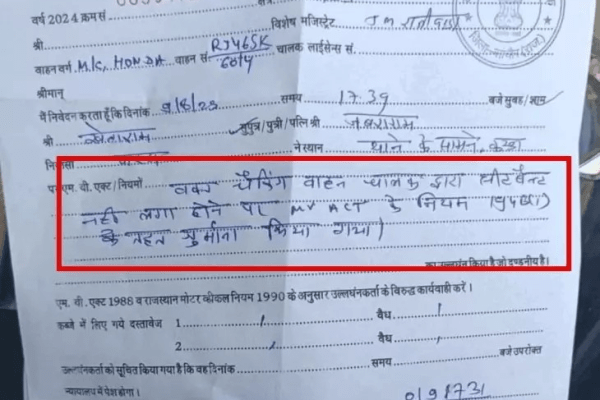 वर्ष 2024 क्रम सं.
श्री विशेष मजिस्ट्रेट J M
वाहन वर्ग M.C, HONDA वाहन सं. RJ46SK 6014 चालक लाईसेन्स सं.
श्रीमान्
मैं निवेदन करता हूँ कि दिनांक समय 17.39 बजे सुबह/शाम
श्री खेताराम सुपुत्र/पुत्री/पत्नि श्री
ने स्थान थाने के सामने,
ए. एम. वी. एक्ट/नियमों वक्त चैकिंग वाहन चालक द्वारा सीटबैल्ट
नही लगा होने पर MV ACT के नियम 194B(1)
के तहत जुर्माना किया गया।
का उल्लंघन किया है जो दण्डनीय है।
एम. वी. एक्ट 1988 व राजस्थान मोटर व्हीकल नियम 1990 के अनुसार उल्लंघनकर्ता के विरुद्ध कार्यवाही करें।
कब्जे में लिए गये दस्तावेज 1 वैध
2 वैध
उल्लंघनकर्ता को सूचित किया गया है कि वह दिनांक समय बजे उपरोक्त
न्यायालय में पेश होगा।